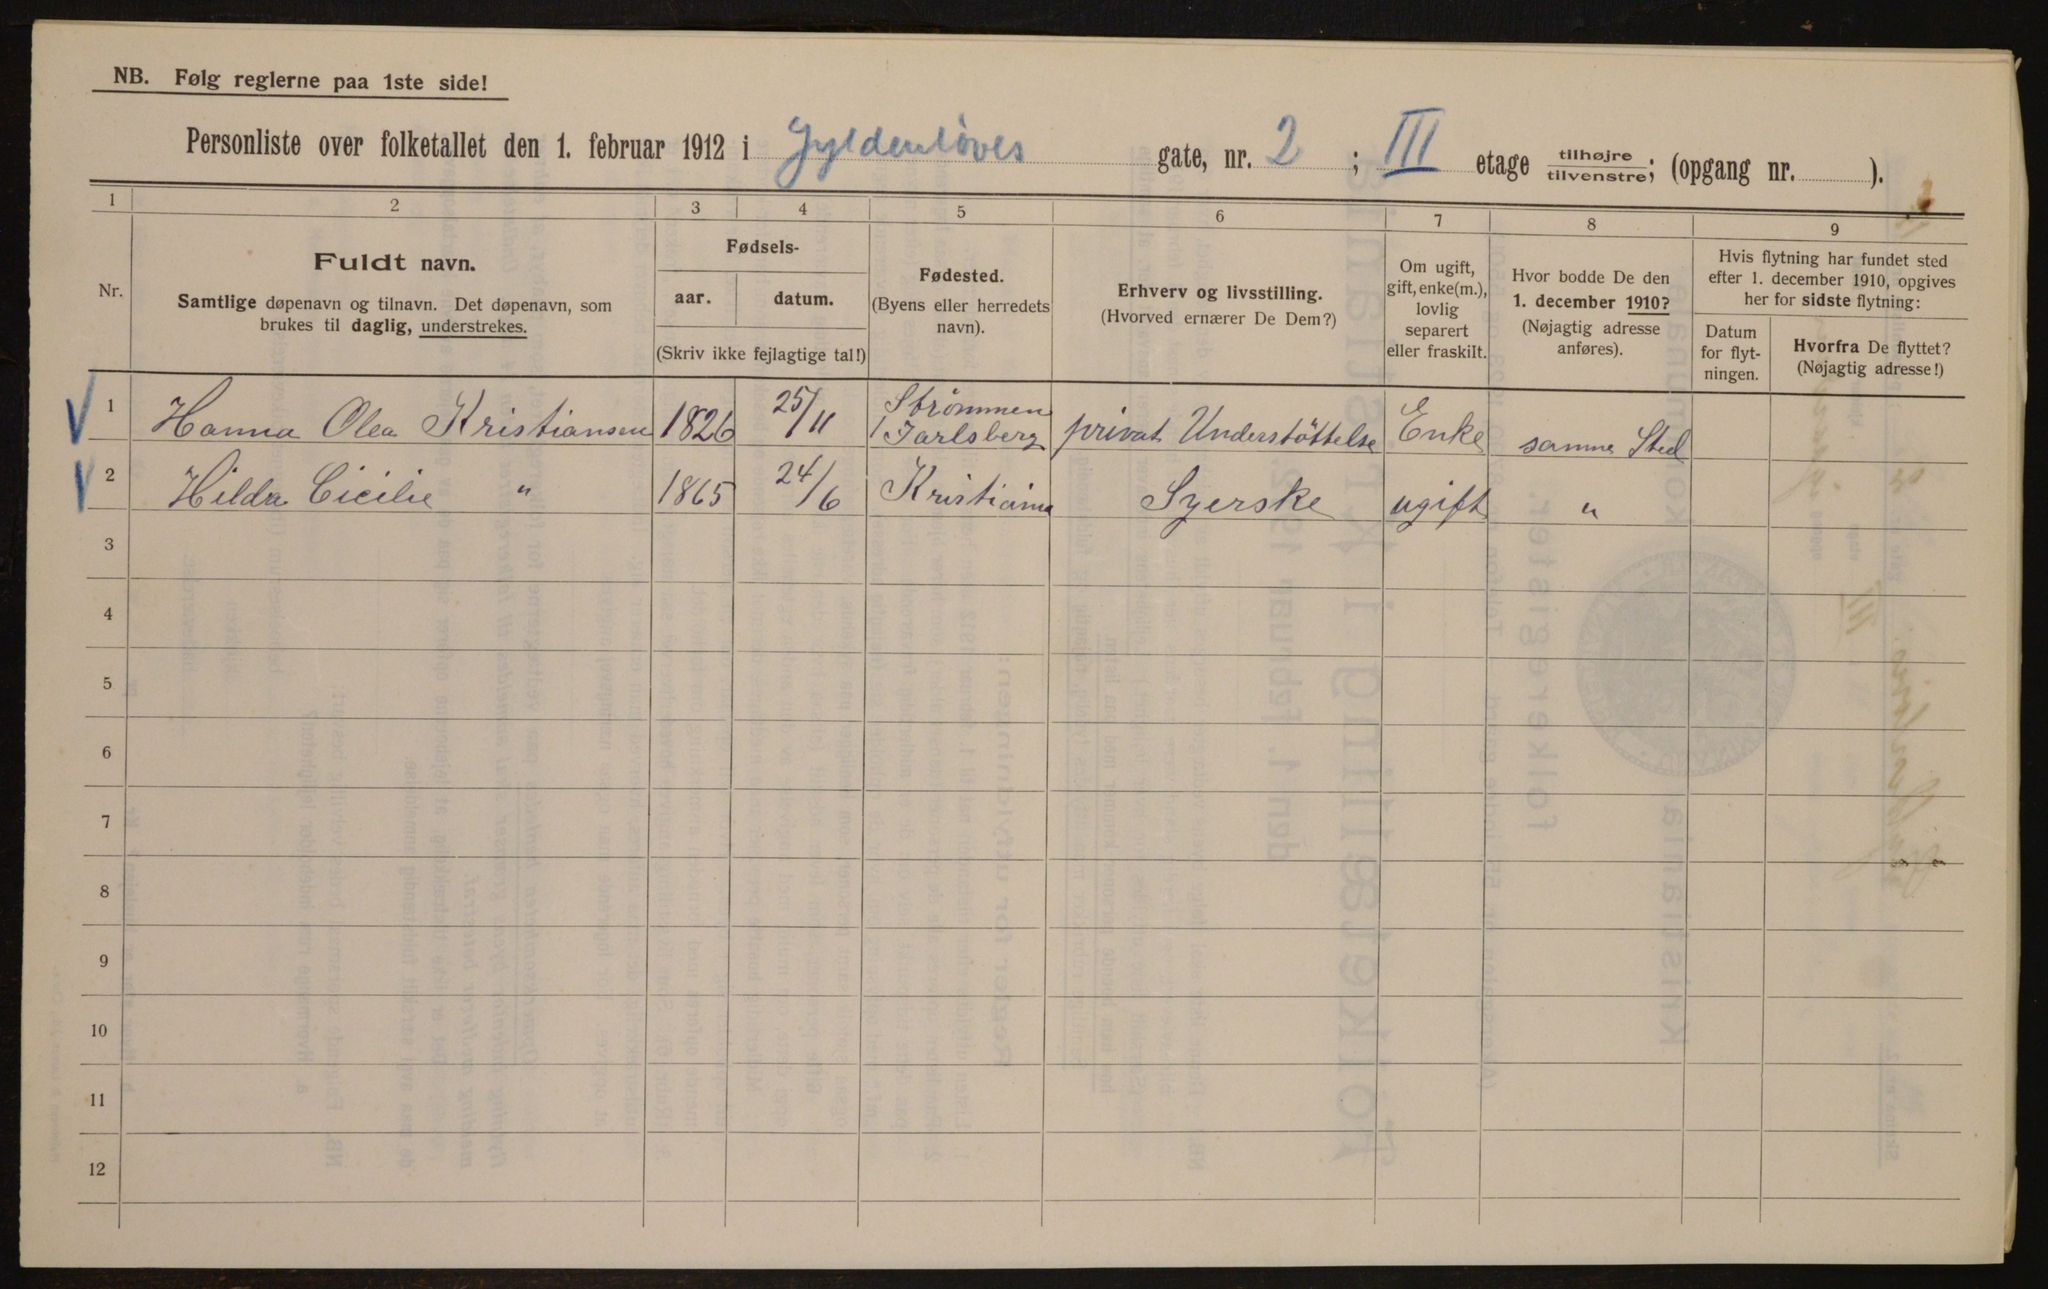 NB. Følg reglerne paa 1ste side!
Personliste over folketallet den 1. februar 1912 i Gyldenløves gate, nr. 2 ; III etage tilhøjre tilvenstre; (opgang nr. ).
1 2 3 4 5 6 7 8 9
Nr.
Fuldt navn.
Samtlige døpenavn og tilnavn. Det døpenavn, som
brukes til daglig, understrekes.
Fødsels-
aar. datum.
(Skriv ikke fejlagtige tal!)
Fødested.
(Byens eller herredets
navn).
Erhverv og livsstilling.
(Hvorved ernærer De Dem?)
Om ugift,
gift, enke(m.),
lovlig
separert
eller fraskilt.
Hvor bodde De den
1. december 1910?
(Nøjagtig adresse
anføres).
Hvis flytning har fundet sted
efter 1. december 1910, opgives
her for sidste flytning:
Datum
for flyt-
ningen.
Hvorfra De flyttet?
(Nøjagtig adresse!)
1 Hanna Olea Kristiansen 1826 25/11 Strömmen Jarlsberg privat Understöttelse Enke samme Sted
2 Hilda Cicilie " 1865 24/6 Kristiania Syerske ugift "
3
4
5
6
7
8
9
10
11
12